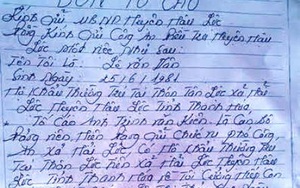 ĐƠN TỐ CÁO
Kính Gửi UBND Huyện Hậu Lộc
Đồng Kính Gửi Công An Điều Tra Huyện Hậu
Lộc Một Việc Như Sau:
Tên Tôi Là: Lê Văn Dần
Sinh Ngày: 25/6/1981
Hộ Khẩu Thường Trú Tại Thôn Tân Lộc Xã Hải
Lộc Huyện Hậu Lộc Tỉnh Thanh Hoá
Tố Cáo Anh Trịnh Văn Kiên Là Cán Bộ
Đảng Viên Hiện Đang Giữ Chức Vụ Phó Công
An Xã Hải Lộc Có Hộ Khẩu Thường Trú
Tại Thôn Lộc Xã Hải Lộc Huyện Hậu
Lộc Tỉnh Thanh Hoá Về Tội